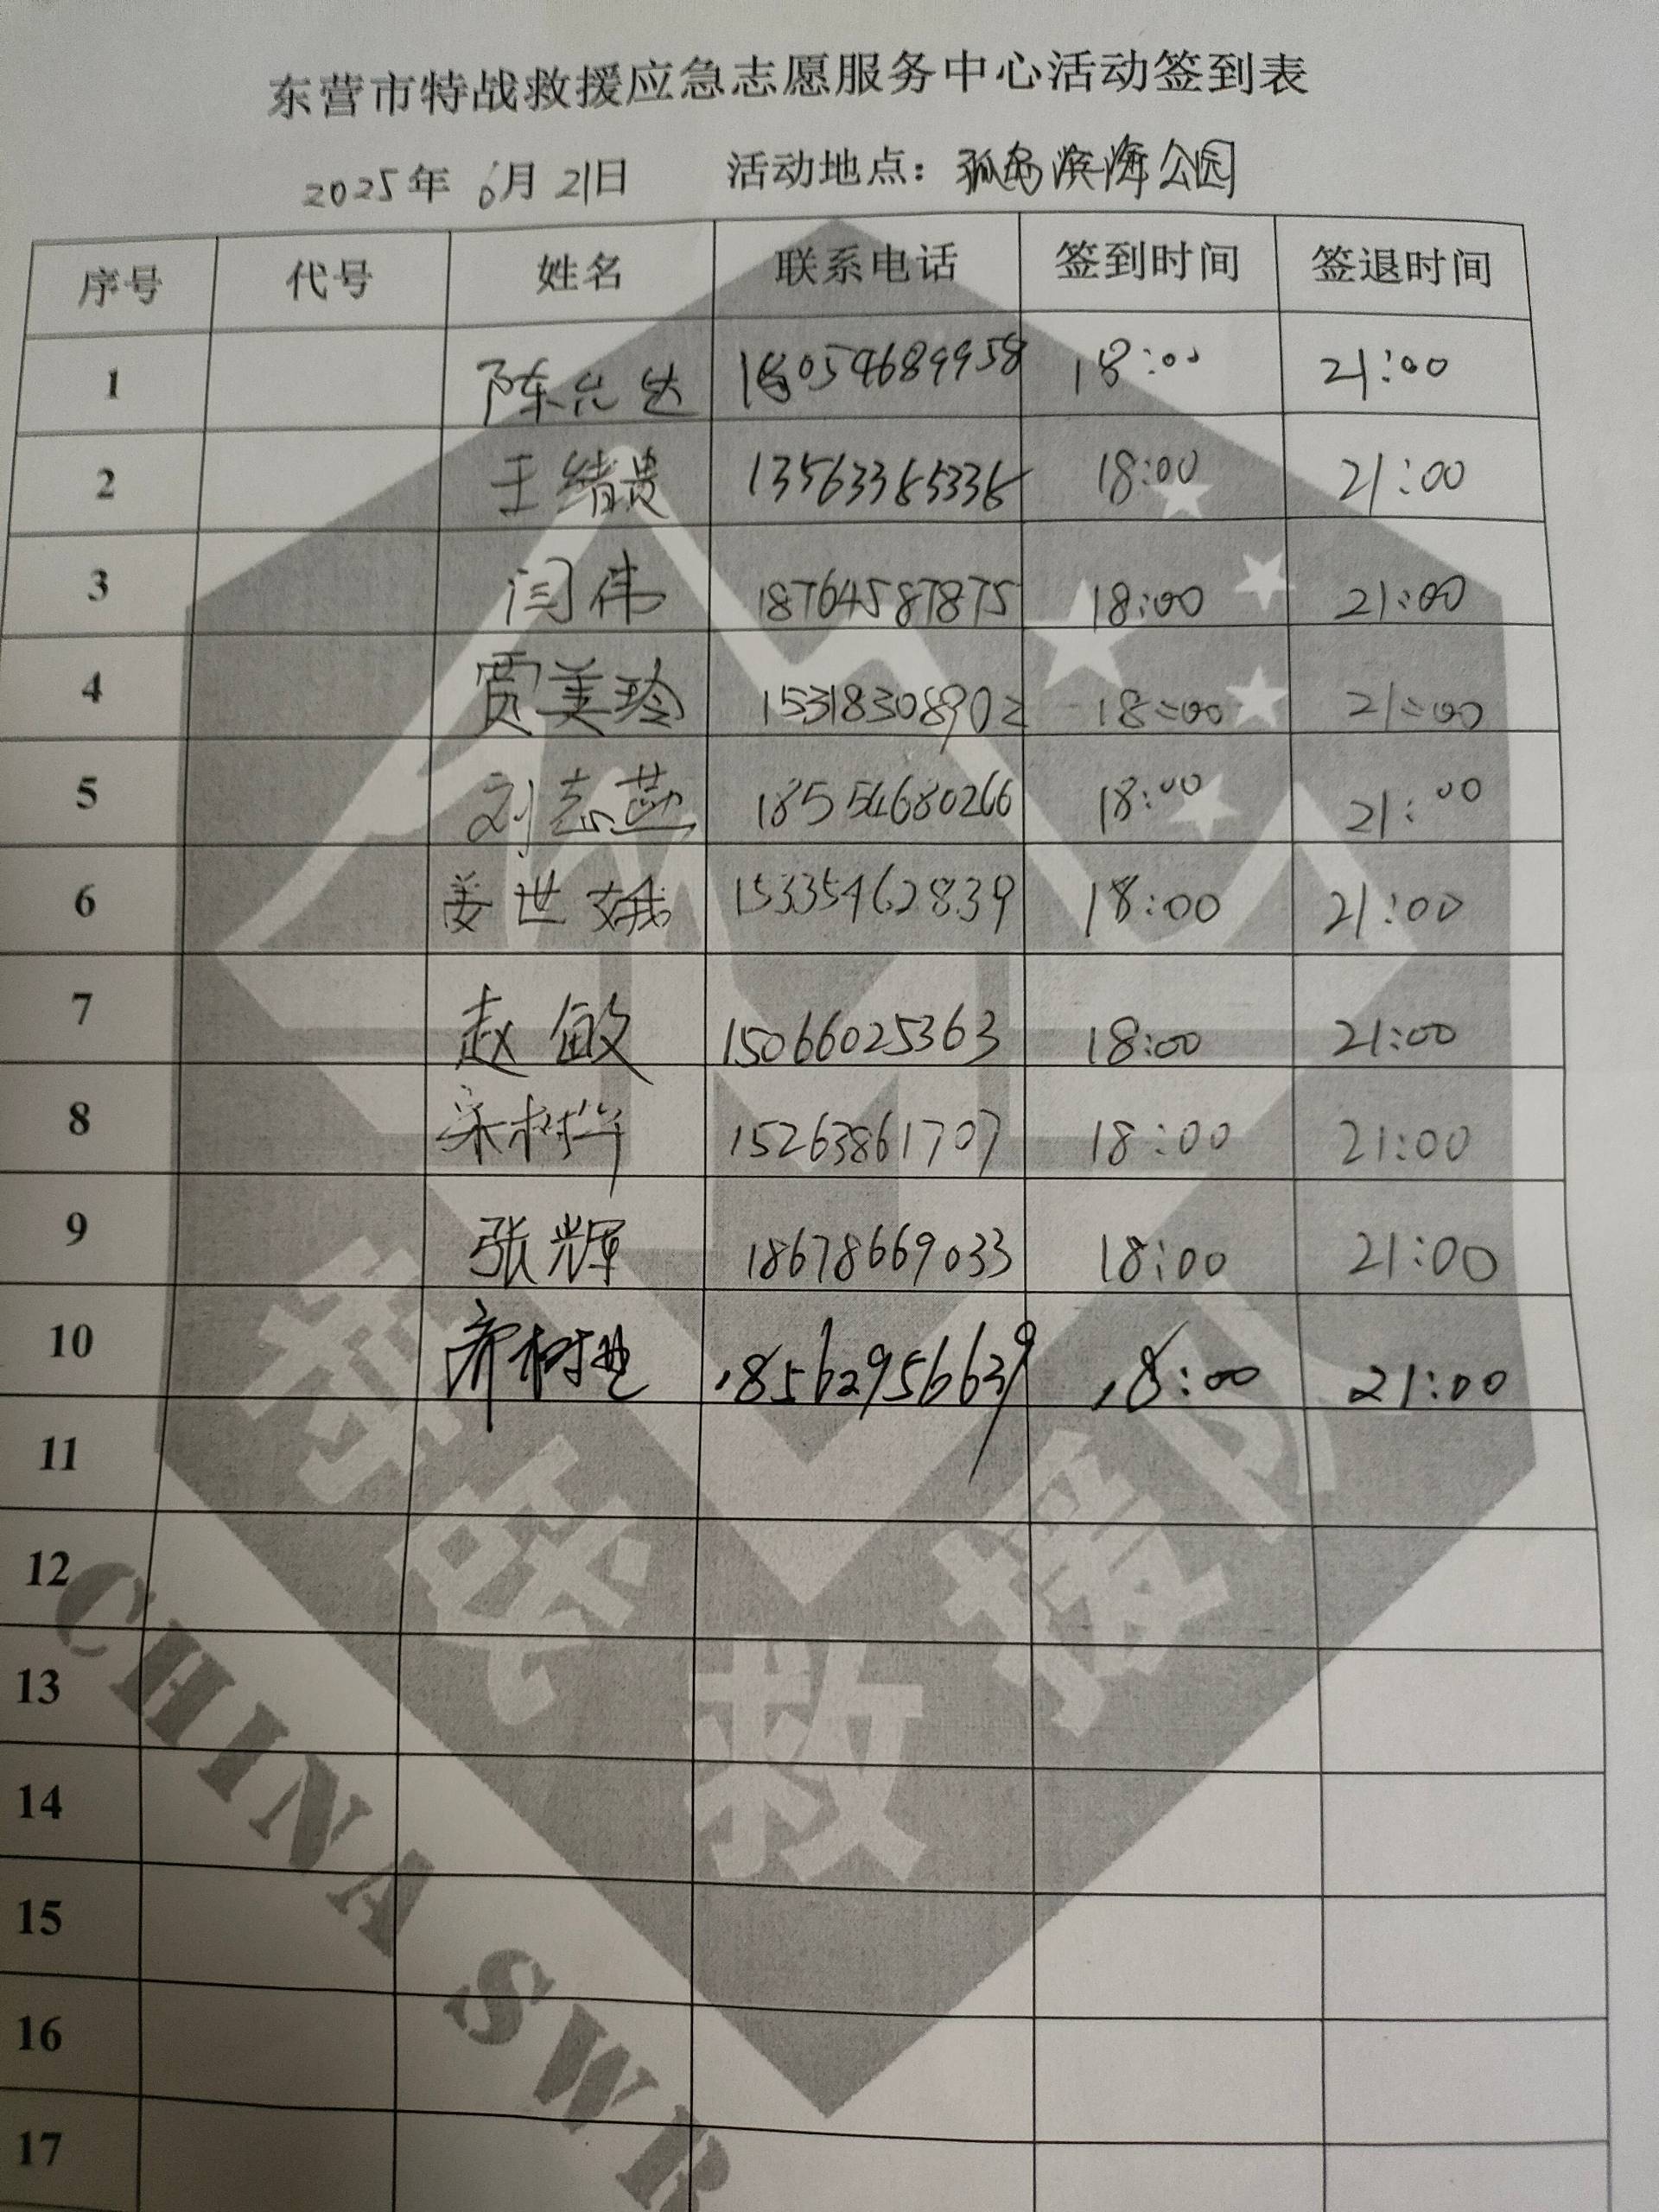 东营市特战救援应急志愿服务中心活动签到表
2025年 6月 21日 活动地点：孤岛滨海公园
序号 代号 姓名 联系电话 签到时间 签退时间
1 陈 18054689958 18:00 21:00
2 王绪贵 13563365336 18:00 21:00
3 闫伟 18764587875 18:00 21:00
4 贾美玲 15318308902 18:00 21:00
5 刘志燕 18554680266 18:00 21:00
6 姜世娥 15335462839 18:00 21:00
7 赵敏 15066025363 18:00 21:00
8 宋树华 15263861707 18:00 21:00
9 张辉 18678669033 18:00 21:00
10 树 18562956639 18:00 21:00
11
12
13
14
15
16
17
特战救援队
CHINA SWR